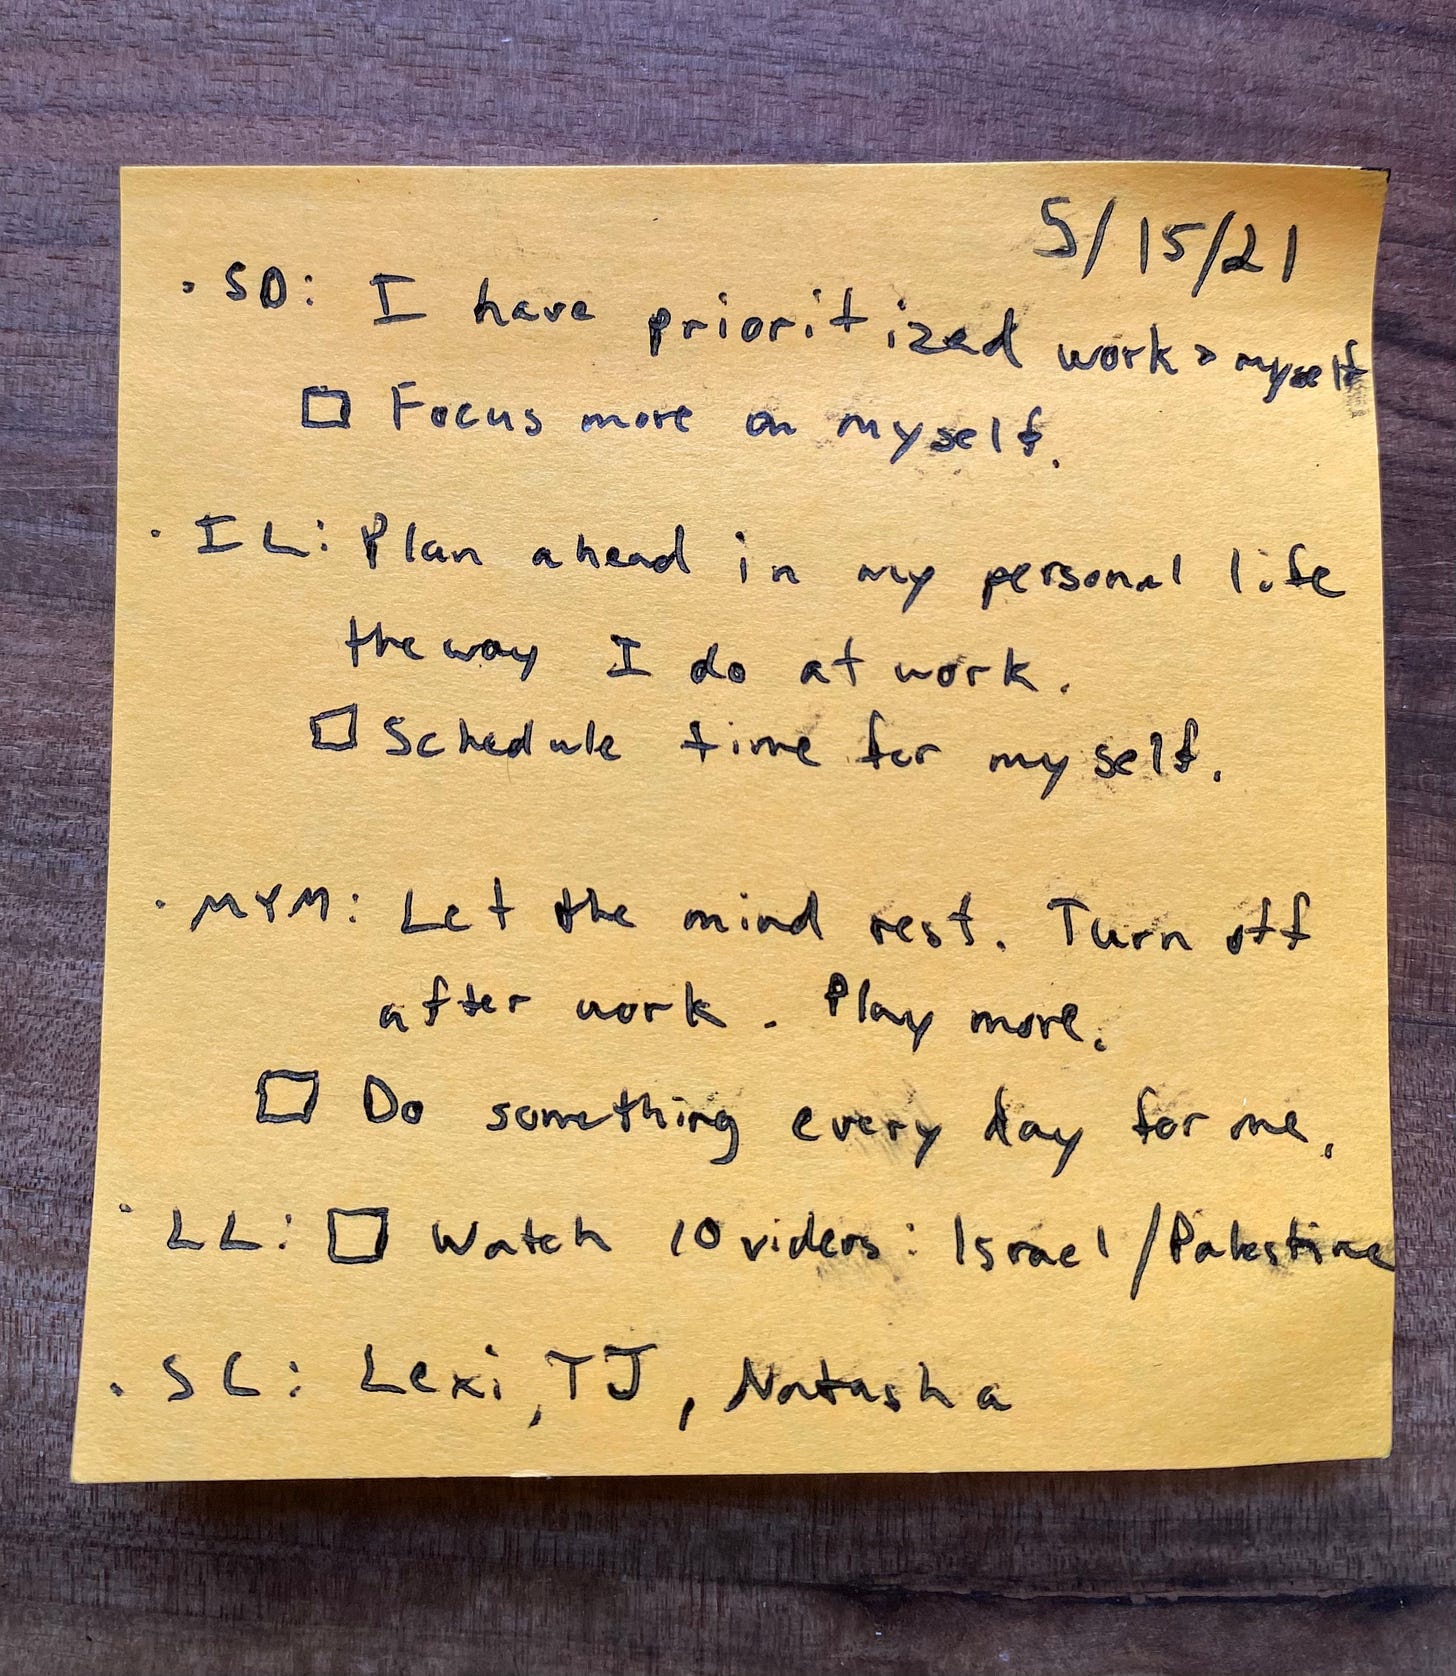 5/15/21
· SD: I have prioritized work > myself
☐ Focus more on myself.
· IL: Plan ahead in my personal life
the way I do at work.
☐ Schedule time for myself.
· MYM: Let the mind rest. Turn off
after work. Play more.
☐ Do something every day for me.
· LL: ☐ Watch 10 videos: Israel/Palestine
· SC: Lexi, TJ, Natasha